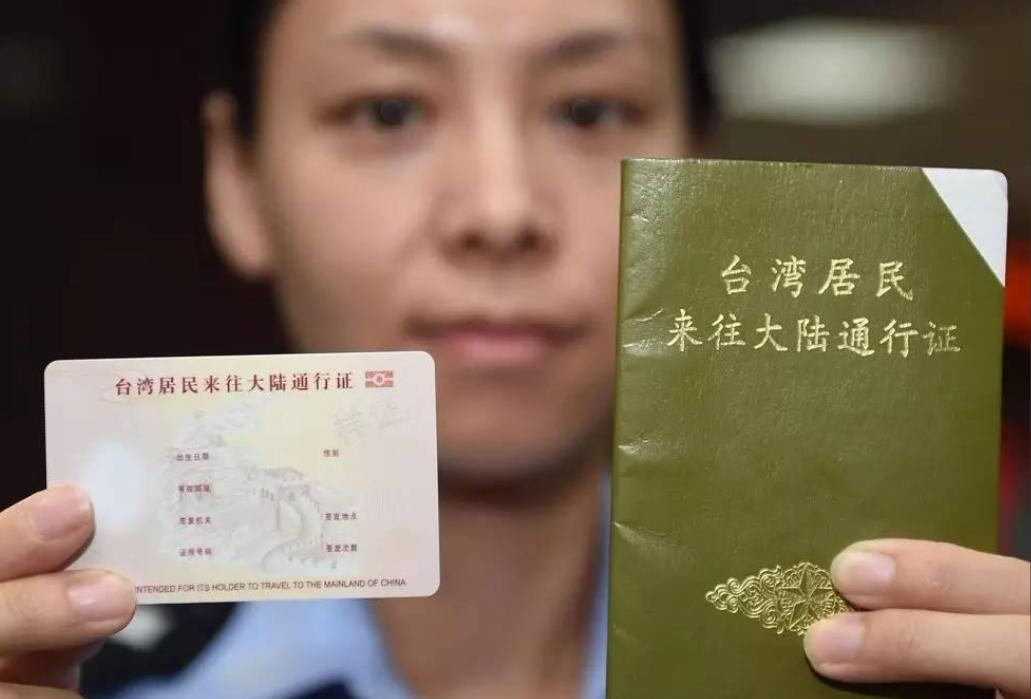 台湾居民来往大陆通行证
样证
出生日期
性别
有效期限
签发机关
签发地点
证件号码
签发次数
INTENDED FOR ITS HOLDER TO TRAVEL TO THE MAINLAND OF CHINA.
台湾居民
来往大陆通行证